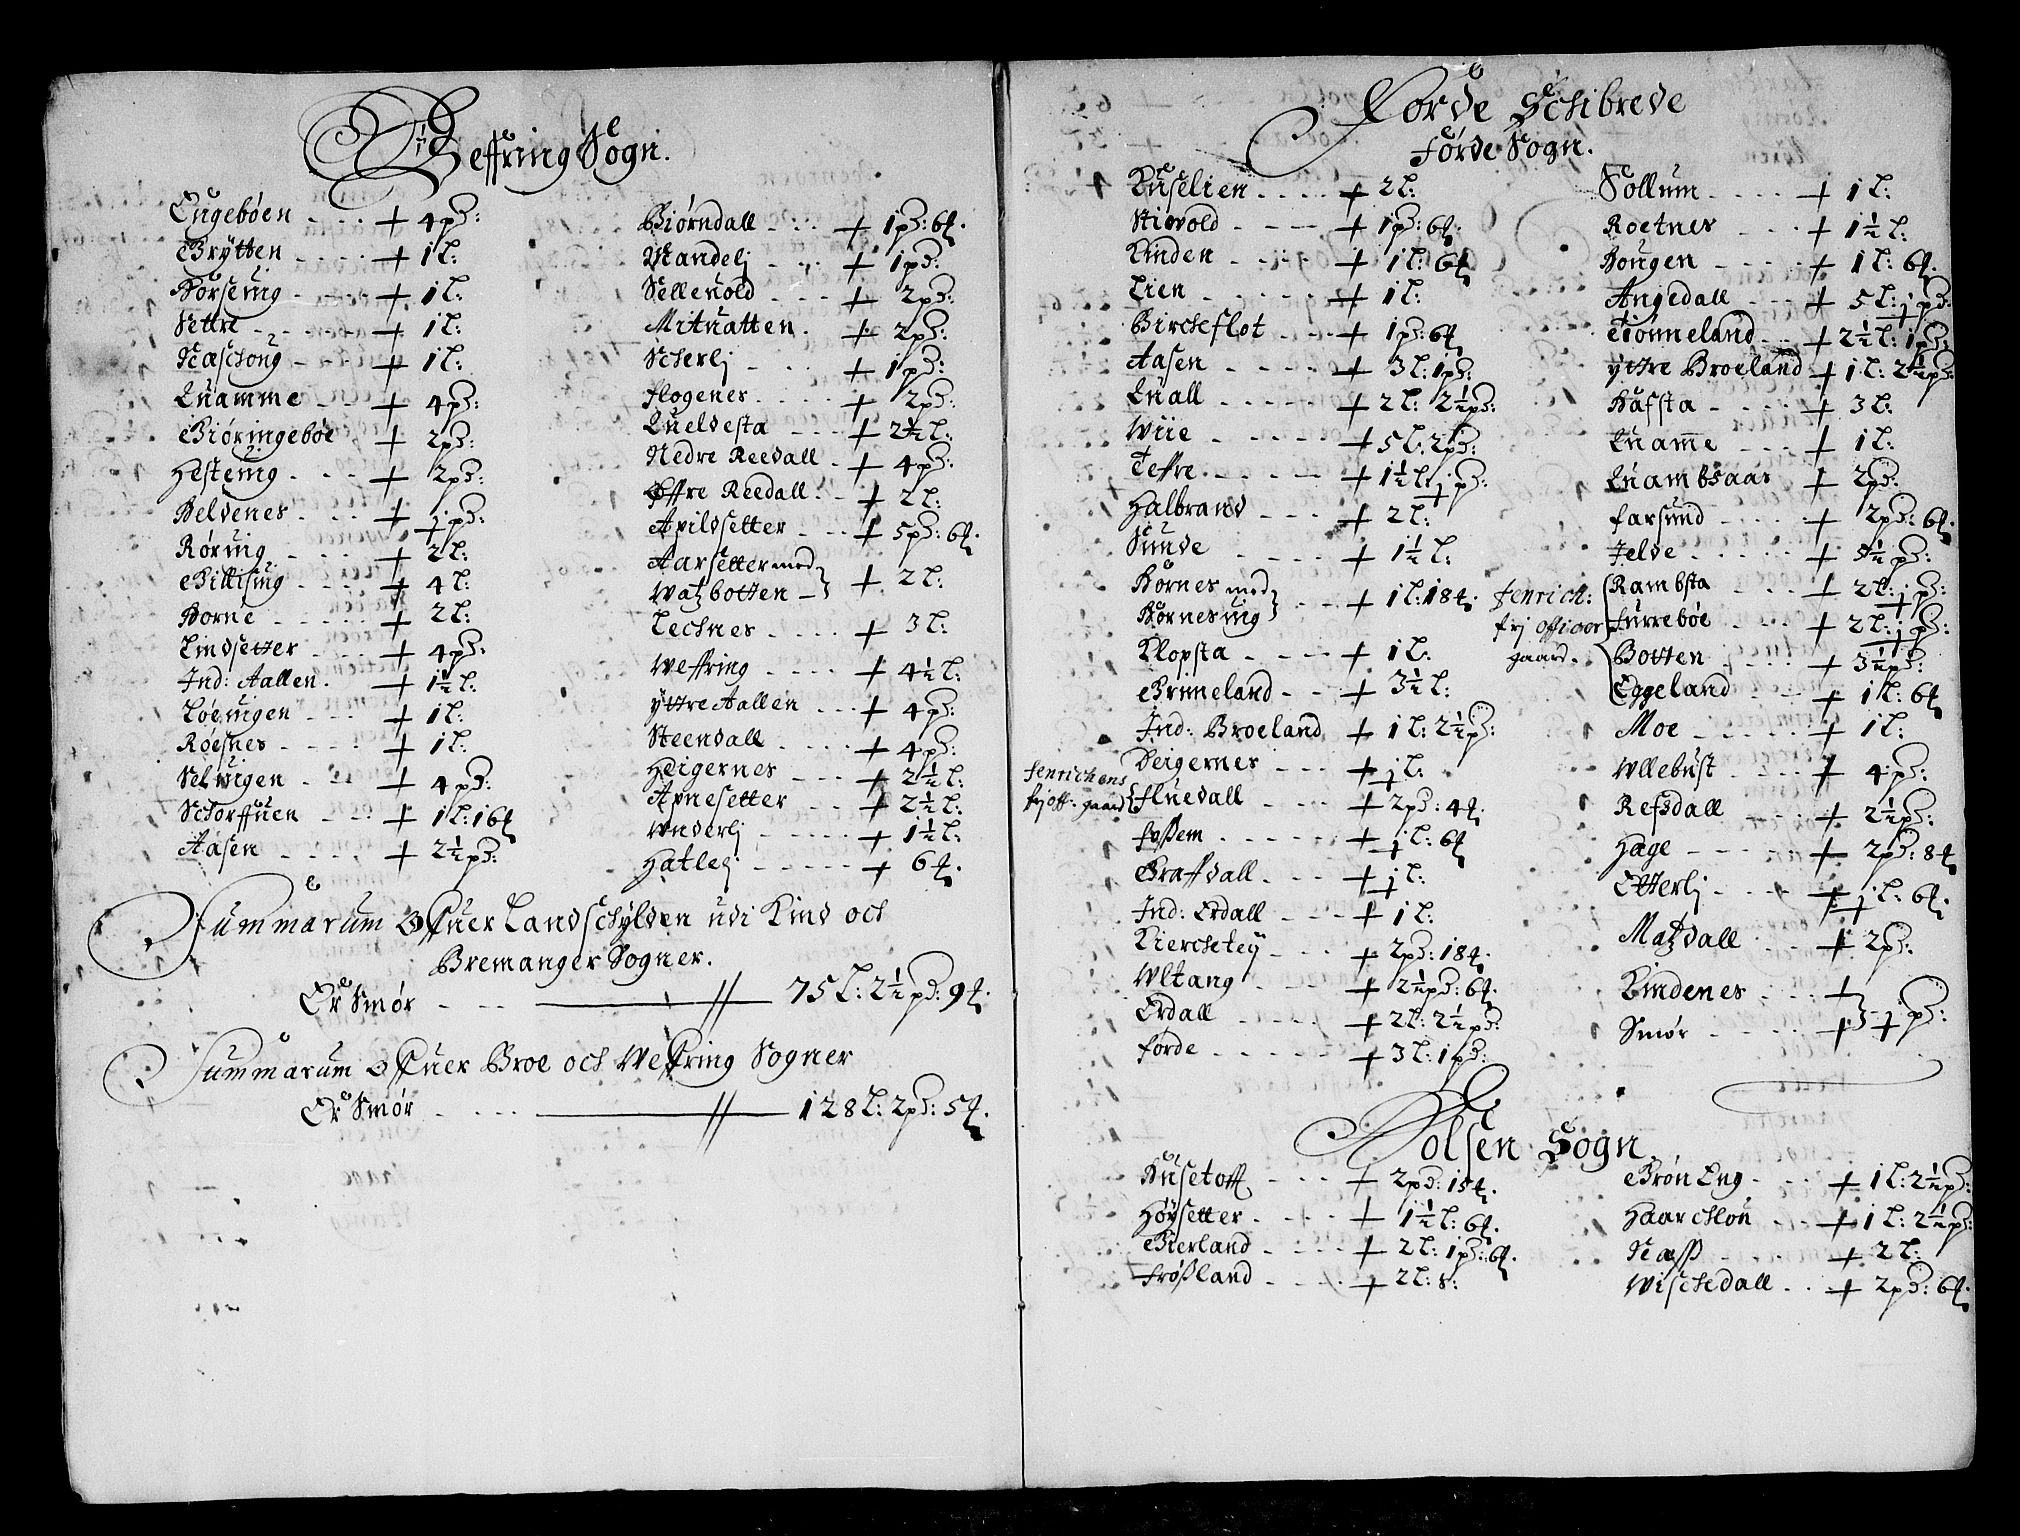 Weffring Sogn.
Engebøen - - - + 4pd:
Brÿtten - - - - + 1 L:
Horseng - - - - + 1 L:
Settre - - - - + 1 L:
Næschoug - + 1 L:
Quamme - - + 4pd:
Biøringebøe + 2pd:
Hesteng - - - + 2pd:
Heldenes - - - + jpd:
Røring - - - + 2 L:
Billising - - - + 4 L:
Horne - - - - - + 2 L:
Lindsetter - - - + 4pd:
Ind: Aallen. + 1½ L:
Løeingen - - - + 1 L:
Røesnes - - - - + 1 L:
Selwigen - - - + 4pd:
Schorffuen - - - + 1 L: 16 ℔
Aasen - - - - + 2½pd:
Biørndall - - - + 1pd: 6 ℔.
Standelj - - - + 1pd:
Sellewold - - - + 2pd:
Mituatten. + 2pd:
Scherlj - - - - + 1pd:
Flogenes - - - - + 2pd:
Queldesta - - - + 2½ L:
Nedre Reedall - + 4pd:
Øffre Reedall - - + 2 L:
Apildsetter - - - + 5pd: 6 ℔.
Aarsetter med
Watzbotten - } + 2 L:
Lechnes - - - - + 3 L:
Weffring - - - + 4½ L:
ÿttre Aallen - - - + 4pd:
Steendall - - - - + 4pd:
Heigernes - - - - + 2½ L:
Apnesetter - - - + 2½ L:
Wnderlj - - - - - + 1½ L:
Hatlej - - - - - - + 6 ℔.
Summarum Offuer Landschÿlden udi Kind och
Bremanger Sogner.
Er Smør - - - - 75 L: 2½pd: 9 ℔.
Summarum Offuer Broe och Weffring Sogner
Er Smør - - - - 128 L: 2pd: 5 ℔.
Førde Schibrede
Førde Sogn.
Kuselien - - - - + 2 L:
Stiovold - - - - + 1pd: 6 ℔.
Linden - - - - + 1 L: 6 ℔
Lien - - - - - - + 1 L:
Bircheflot - - - + 1pd: 6 ℔
Aasen - - - - - + 3 L: 1pd:
Quall - - - - - + 2 L: 2½pd:
Wiie - - - - - + 5 L: 2pd:
Teffre - - - - + 1½ L: jpd:
Halbrand - - - + 2 L:
Sunde - - - - + 1½ L:
Hornes med
Hornesng } - - - + 1 L: 18 ℔.
Klopsta - - - - + 1 L:
Brimeland - - + 3½ L:
Ind: Broeland + 1 L: 2½pd:
Heigernes - - - + j L:
fenrichens
frj off: gaard { Fluedall - - - + 2pd: 4 ℔.
Fossem - - - - - + j L: 6 ℔
Graffdall - - - + j L:
Ind: Erdall - - - + 1 L:
Kierchetey - - - + 2pd: 18 ℔.
Wltang - - - - + 2½pd: 6 ℔.
Erdall - - - - + 2 L: 2½pd:
Førde - - - - - + 3 L: 1pd:
Sollum - - - - + 1 L:
Roetnes - - - + 1½ L:
Hougen - - - - + 1 L: 6 ℔.
Angedall - - - + 5 L: jpd:
Tiønneland - - + 2½ L: 1pd:
ÿttre Broeland + 1 L: 2½pd:
Hafsta - - - - + 3 L:
Quamme - - - + 1 L:
Quambsaas + 2pd:
Farsund - - - - + 2pd: 6 ℔.
Jelde - - - - - + 5½pd:
Fenrich:
frj officer
gaard. { Rambsta + 2 L: jpd:
Furrebøe - - - + 2 L: jpd:
Botten - - - - + 3½pd:
Eggeland - - - + 1 L: 6 ℔
Moe - - - - - + 1 L:
Ullebust - - - + 4pd:
Refsdall - - - + 2½pd:
Hage - - - - - + 2pd: 8 ℔
Etterlj - - - - + j L: 6 ℔.
Matzdall - - - + 2pd:
Lindenes - - - +
Smør - - - - + } jpd:
Holsen Sogn.
Husetofft - - - + 2pd: 15 ℔.
Høÿsetter - - - + 1½ L: 6 ℔.
Bierland - - - - + 2 L: 1pd: 6 ℔.
Frøsland - - - - + 2 L: 8:
Brøn Eng - - - + 1 L: 2½pd:
Haarchlou - - + 1 L: 2½pd:
Næss - - - - - + 2 L:
Wischedall - - + 2pd: 6 ℔.